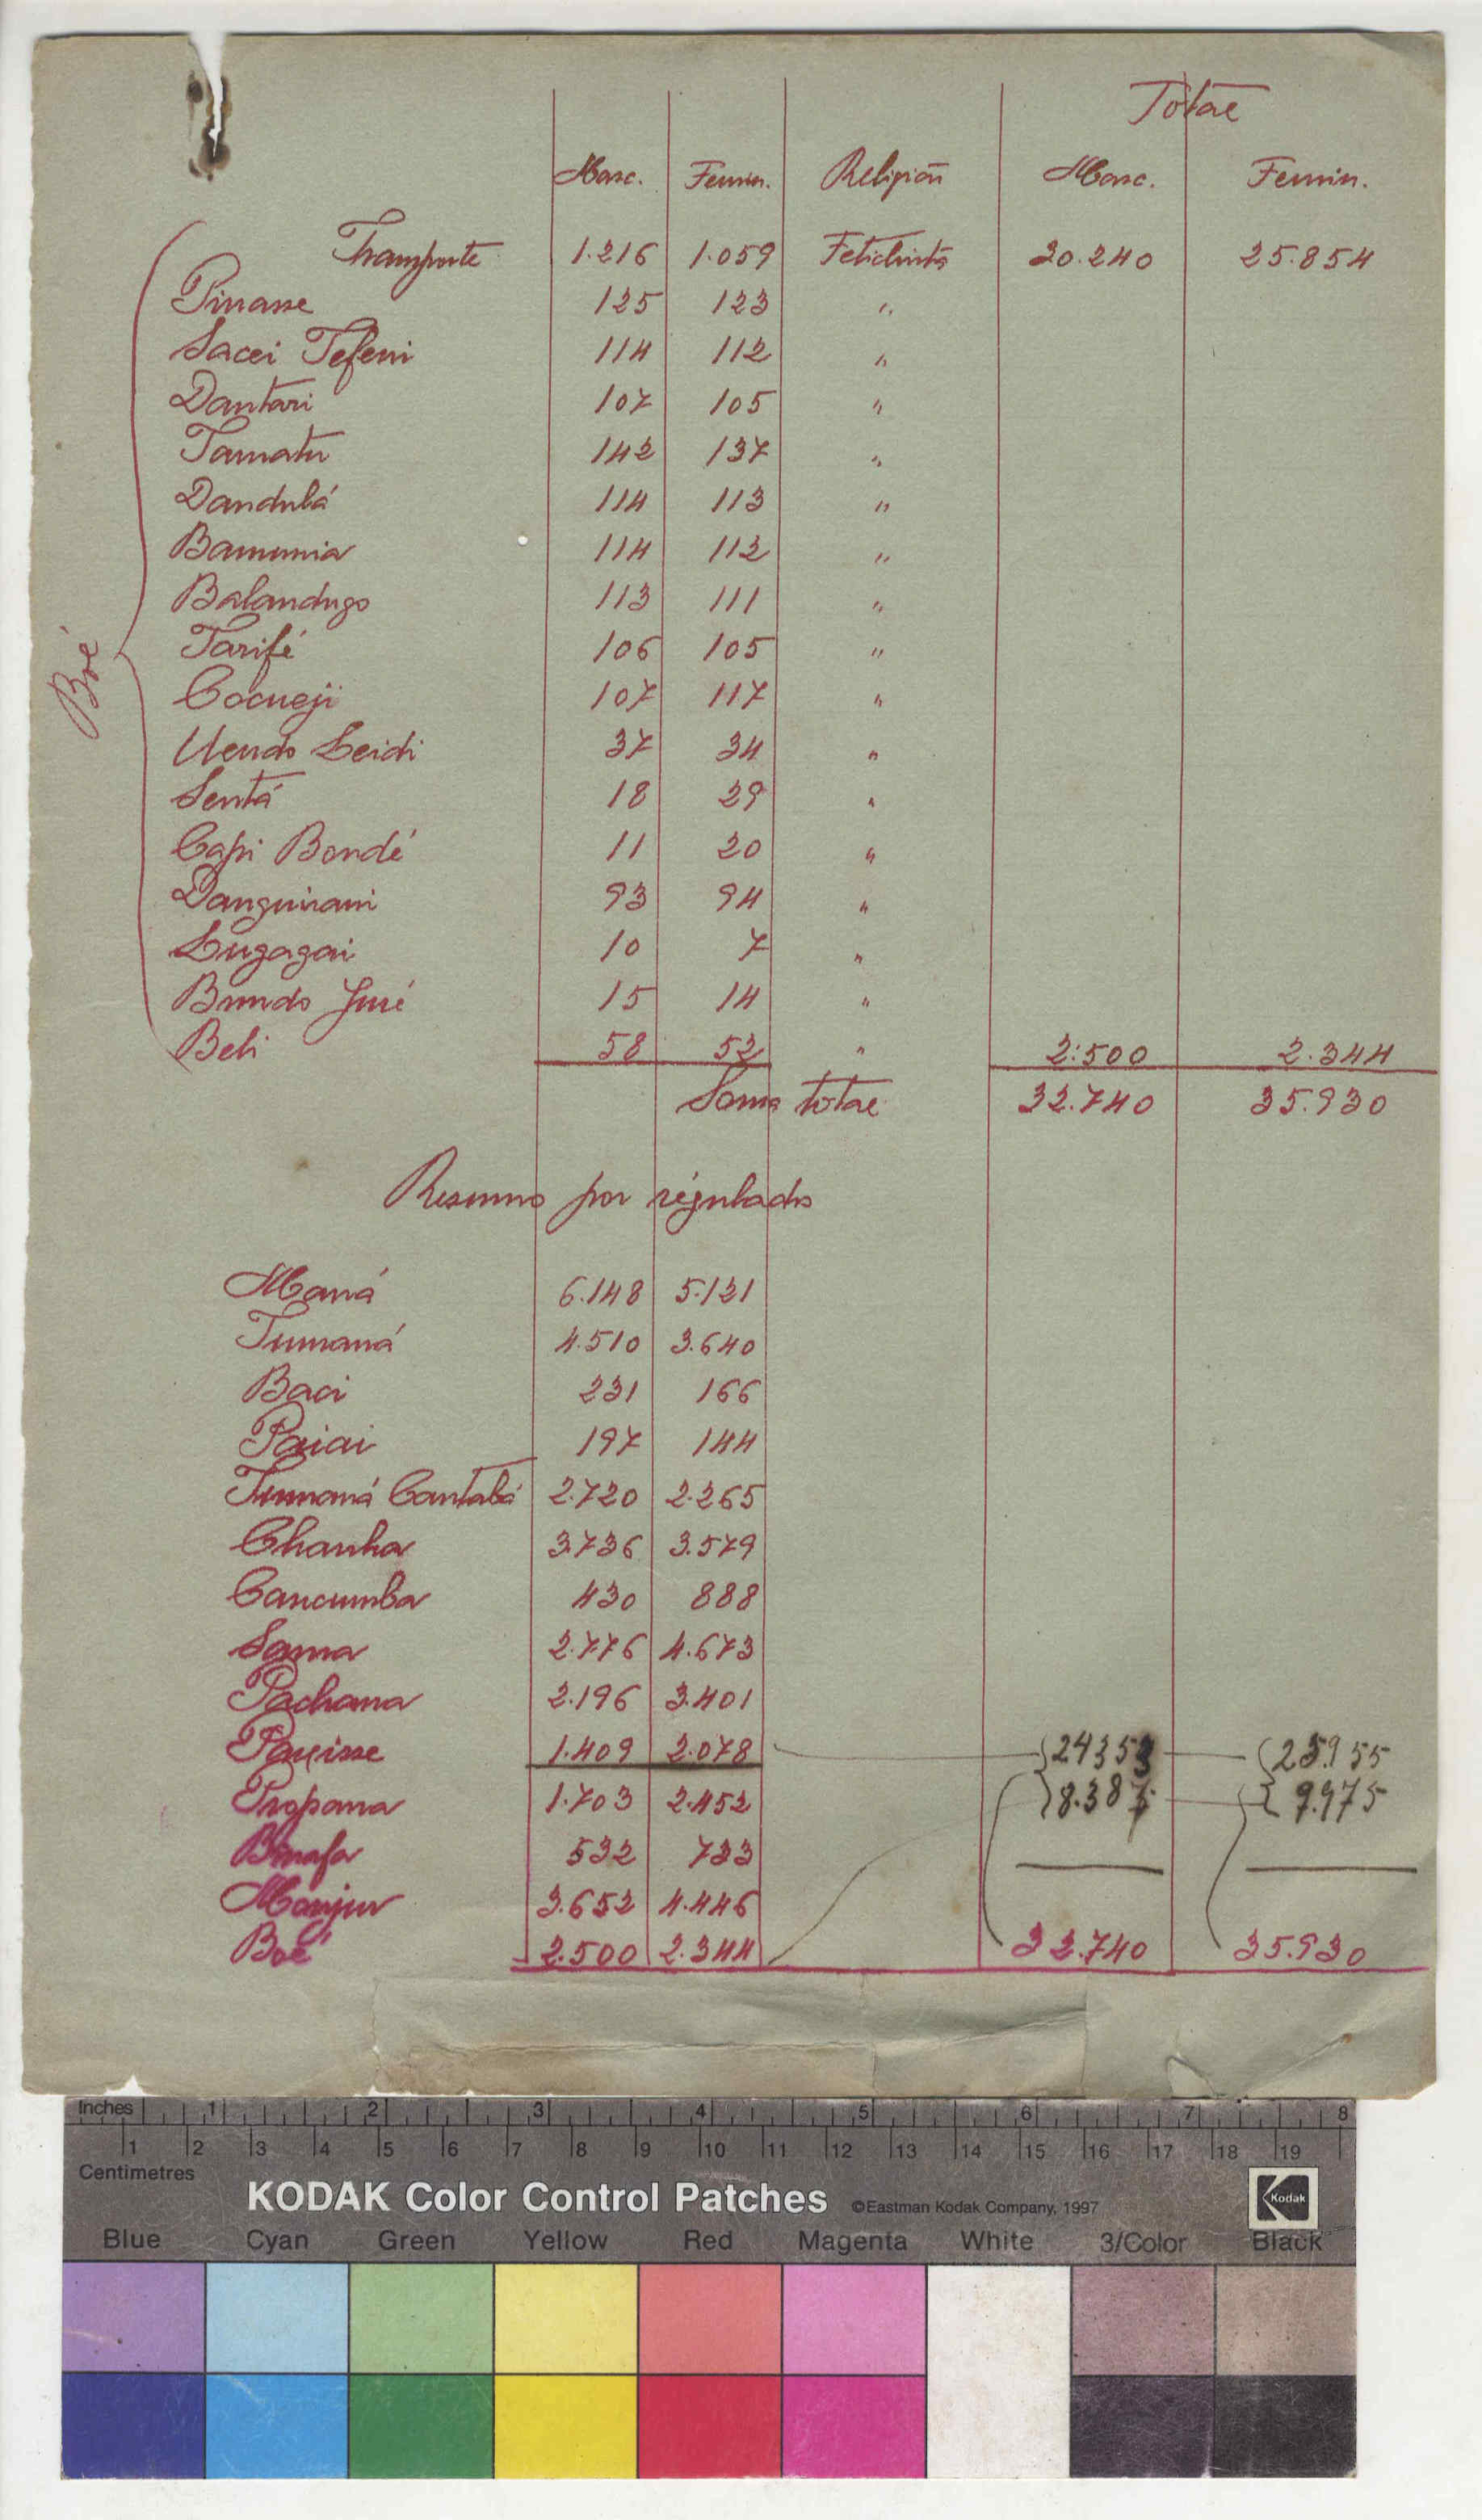 Total
Masc. Femin. Religião Masc. Femin.
Transporte 1.216 1.059 Fetichista 30.240 35.854
Pirrasse 125 123 "
Sacei Tefeni 114 112 "
Dantari 107 105 "
Tamatu 142 137 "
Dandulá 114 113 "
Bamunia 114 112 "
Balandugo 113 111 "
Tarifé 106 105 "
Cocueji 107 117 "
Uendo Leidi 37 34 "
Sentá 18 29 "
Capi Bondé 11 20 "
Danguirani 93 94 "
Lugagai 10 7 "
Bundo Juré 15 14 "
Beli 58 52 " 2.500 2.344
Boé
Soma total 32.740 35.930
Resumo por régulado
Maná 6.148 5.121
Tumaná 4.510 3.640
Baci 231 166
Paiai 197 144
Tumaná Cantabá 2.720 2.265
Chanha 3.736 3.579
Cancumba 430 888
Sama 2.776 4.673
Pachana 2.196 3.401
Pauisse 1.409 2.078 24353 25.955
Propana 1.703 2.452 8.387 9.975
Binafa 532 733
Manjur 3.652 4.446
Boé 2.500 2.344 32.740 35.930
Inches 1 2 3 4 5 6 7 8
1 2 3 4 5 6 7 8 9 10 11 12 13 14 15 16 17 18 19
Centimetres
KODAK Color Control Patches ©Eastman Kodak Company, 1997 Kodak
Blue Cyan Green Yellow Red Magenta White 3/Color Black